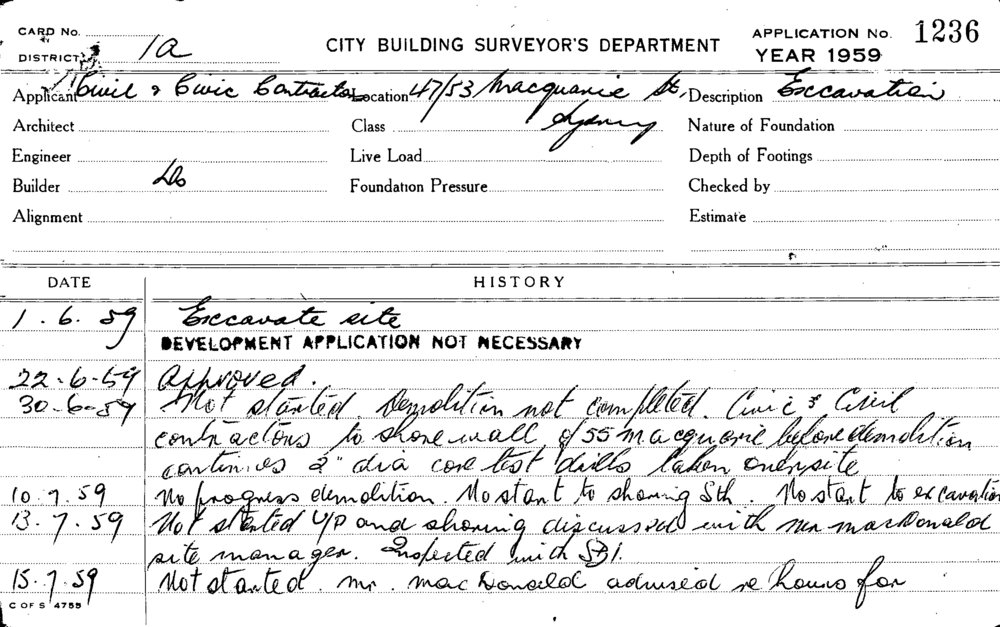 CARD No.
DISTRICT 1a
CITY BUILDING SURVEYOR'S DEPARTMENT
APPLICATION No. 1236
YEAR 1959
Applicant Civil & Civic Contractors Location 47/53 Macquarie St, Description Exccavation
Architect Class Sydney Nature of Foundation
Engineer Live Load Depth of Footings
Builder Do Foundation Pressure Checked by
Alignment Estimate
DATE HISTORY
1.6.59 Exccavate site
DEVELOPMENT APPLICATION NOT NECESSARY
22.6.59 Approved.
30-6-59 Not started. Demolition not completed. Civic & Civil
contractors to shore wall of 55 Macquarie before demolition
continues 2" dia core test drills taken on site
10.7.59 No progress demolition. No start to shoring Sth. No start to excavation
13.7.59 Not started U/P and shoring discussed with Mr MacDonald
site manager. Inspected with
15.7.59 Not started. Mr. MacDonald advised re hours for
C OF S 4755